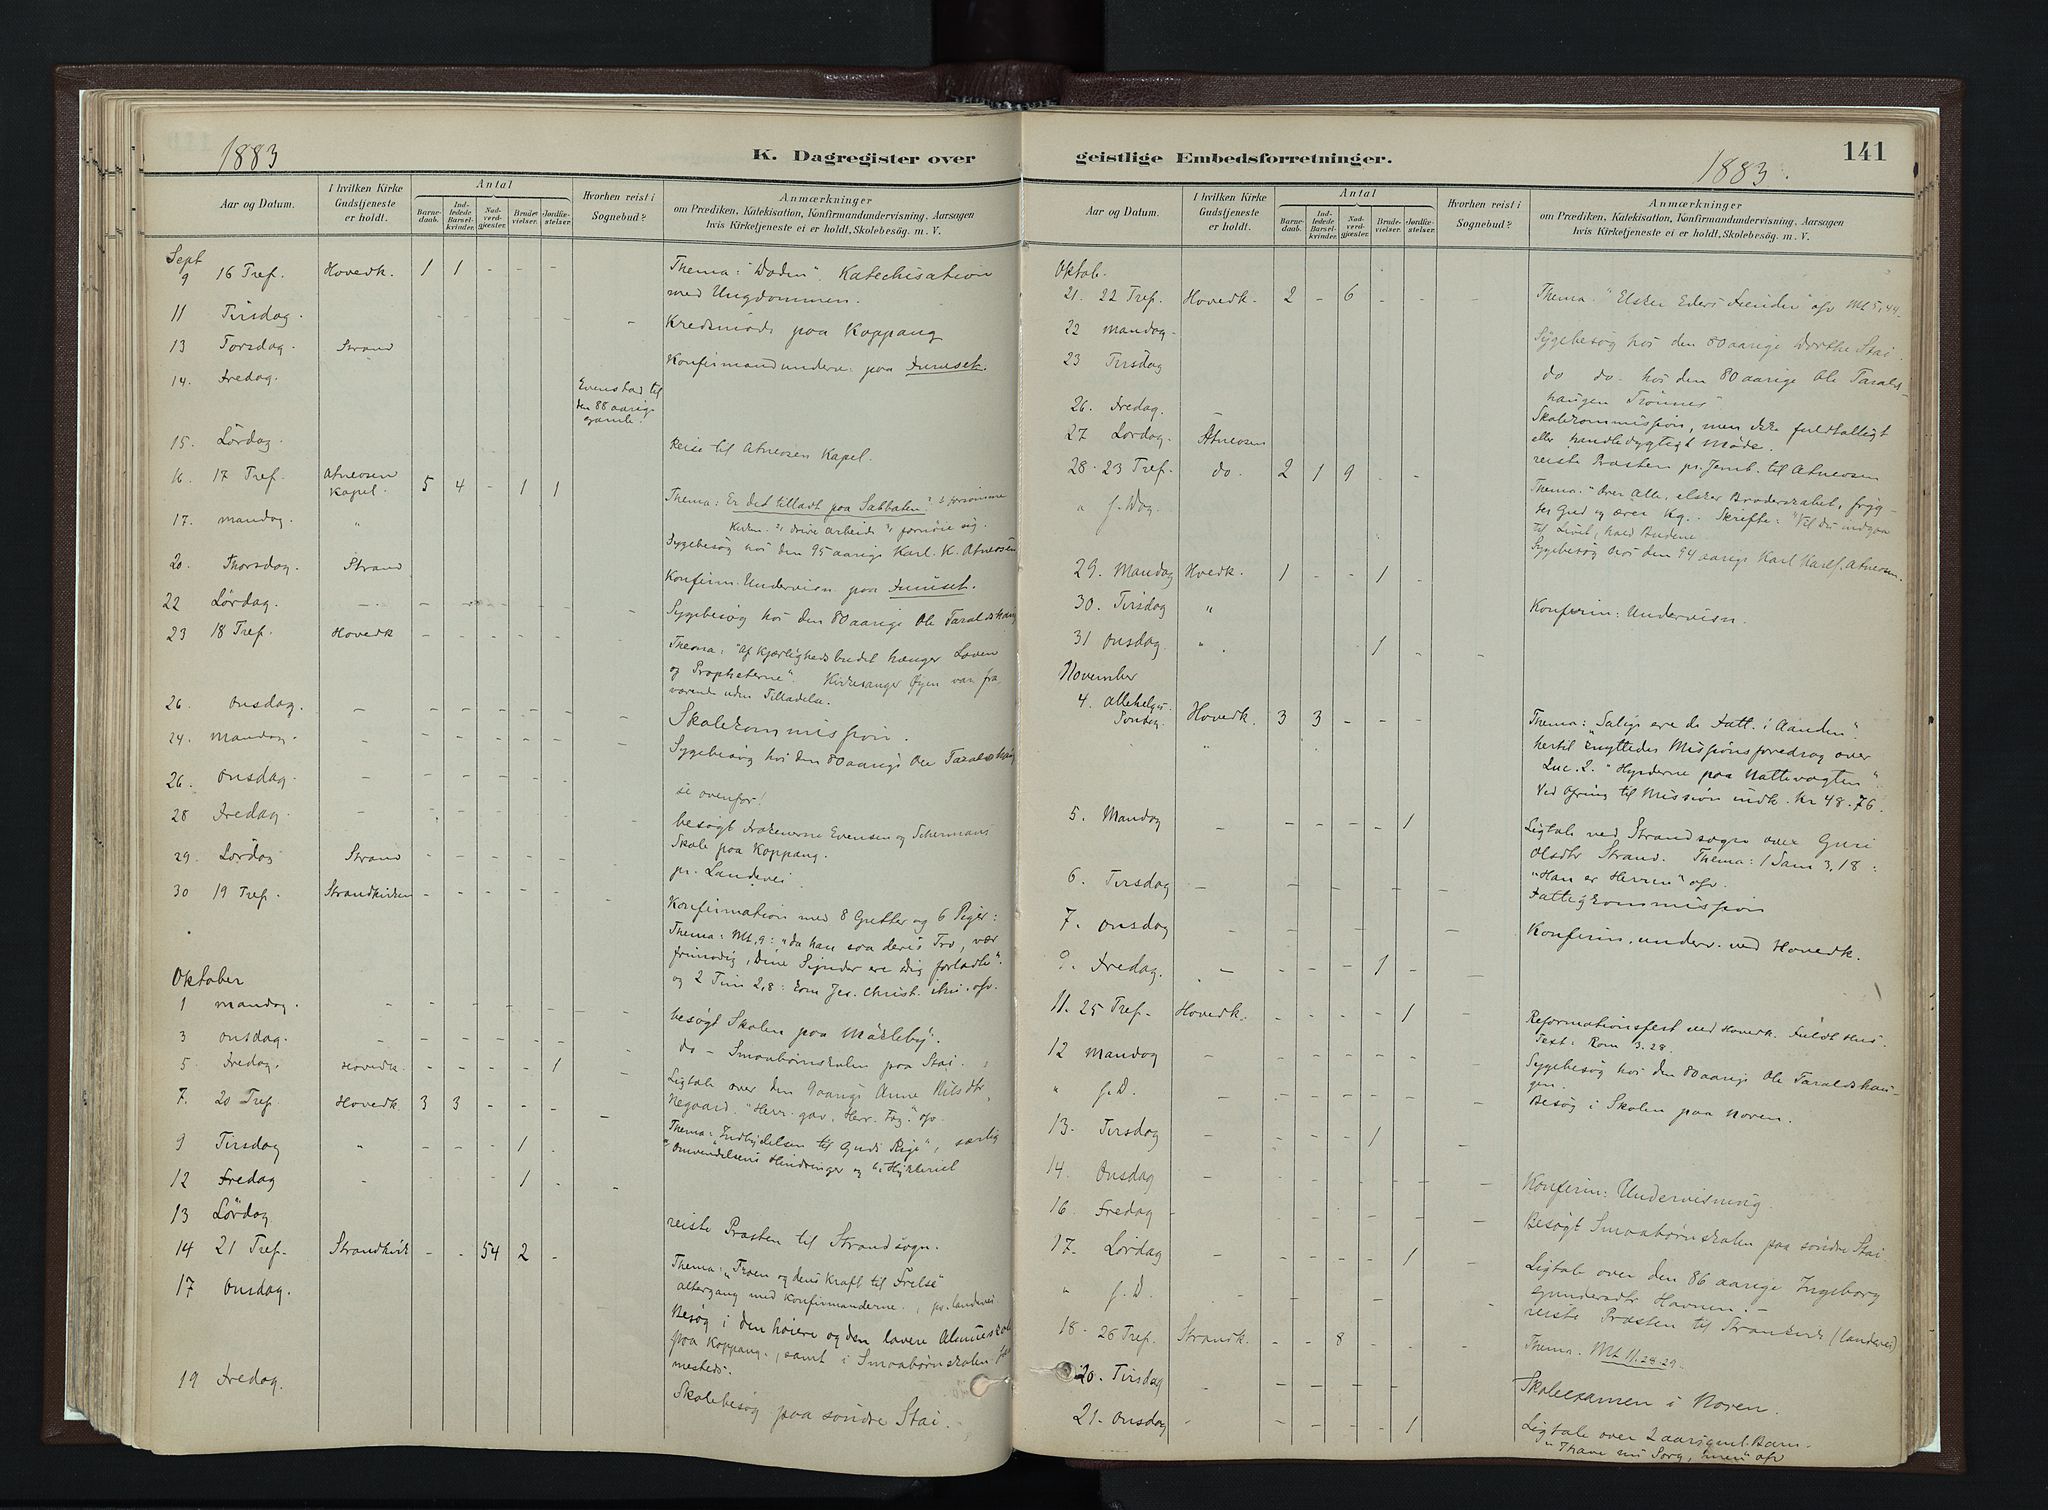 1883
K. Dagregister over
Aar og Datum.
I hvilken Kirke Gudstjeneste er holdt.
Antal
Barnedaab.
Indledede Barselkvinder.
Nadverdgjæster.
Brudevielser.
Jordfæstelser.
Hvorhen reist i Sognebud?
Anmærkninger
om Prædiken, Katekisation, Konfirmandundervisning, Aarsagen
hvis Kirketjeneste ei er holdt, Skolebesøg. m. V.
Sept
9 16 Tref. Hovedk. 1 1 - - - Thema: "Døden". Katechisation
med Ungdommen.
11 Tirsdag. Kredsmøde paa Koppang
13 Torsdag. Strand Konfirmandunderv: paa Furuset.
14. Fredag. Evenstad til
den 88 aarige
gamle!
15. Lørdag. Reise til Atneosen Kapel.
16. 17 Tref. Atneosen
Kapel. 5 4 - 1 1 Thema: Er det tilladt paa Sabbaten?
Kirken. drive arbeide fornøie sig.
17. Mandag. " Sygebesøg hos den 95 aarige Karl. K. Atneosen
20. Thorsdag. Strand Konfirm. Undervisn paa Furuset.
22 Lørdag. Sygebesøg hos den 80 aarige Ole Taraldshaug
23 18 Tref. Hovedk Thema: "Af Kjærlighedsbudet hænger Loven
og Propheterne". Kirkesanger Øyen var fra-
værende uden Tilladelse.
26. Onsdag. Skolekommission.
24. Mandag. Sygebesøg hos den 80 aarige Ole Taraldshaug
26. Onsdag. se ovenfor!
28 Fredag. besøgt Frøkenerne Evensen og Schermans
Skole paa Koppang.
29. Lørdag Strand pr. Landevei
30 19 Tref. Strandkirken Konfirmation med 8 Gutter og 6 Piger:
Thema: Mt. 9: "da han saa deris Tro, vær
frimodig, Dine Synder ere Dig forladte".
og 2 Tim 2,8: Kom Jes. Christ. ihu. ofv.
Oktober
1 Mandag. besøgt Skolen paa Mækleby.
3 Onsdag. do - Smaabørnskolen paa Stai.
5. Fredag. Hovedk. 1 Ligtale over den 9 aarige Anne Nilsdtr
Negaard. "Herr. gav. Herr. tog." ofv.
7. 20 Tref. Hovedk 3 3 - - - Thema: "Indbydelsen til Guds Rige", særlig
9 Tirsdag " 1 Omvendelsens Hindringer og Hykleriet
12 Fredag 1
13 Lørdag reiste Præsten til Strandsogn.
14 21 Tref. Strandkirk - - 54 2 - Thema: "Troen og dens Kraft til Frelse"
altergang med Konfirmanderne. pr. landevei
17 Onsdag. Besøg i den høiere og den lavere Almueskole
paa Koppang., samt i Smaabørnskolen
mesteds.
19 Fredag. Skolebesøg paa søndre Stai.
geistlige Embedsforretninger.
1883.
141
Aar og Datum.
I hvilken Kirke Gudstjeneste er holdt.
Antal
Barnedaab.
Indledede Barselkvinder.
Nadverdgjæster.
Brudevielser.
Jordfæstelser.
Hvorhen reist i Sognebud?
Anmærkninger
om Prædiken, Katekisation, Konfirmandundervisning, Aarsagen
hvis Kirketjeneste ei er holdt, Skolebesøg. m. V.
Oktob.
21. 22 Tref. Hovedk. 2 - 6 - - - Thema. "Elsker Eders Fiender" ofv Mt 5,44.
22 Mandag. Sygebesøg hos den 80 aarige Dorthe Stai.
23 Tirsdag do do. hos den 80 aarige Ole Taralds-
haugen Trønnes
26. Fredag. Skolekommission, men ikke fuldtalligt
eller handledygtigt Møde.
27 Lørdag. Atneosen reiste Præsten pr. Jernb. til Atneosen
28. 23 Tref. do. 2 1 9 - - Thema: "Ærer Alle, elsker Broderskabet, fryg-
ter Gud og ærer Kg. Skrifte: "Vil Du indgaa
til Livet, hold Budene.
" s. Dag. Sygebesøg hos den 94 aarige Karl Karls. Atneosen.
29. Mandag Hvedk. 1 - - 1 -
30. Tirsdag " Konfirm: Undervisn.
31 Onsdag. " 1 - -
November
4. Allehelgs
Søndag. Hovedk. 3 3 - - - Thema: "Salige ere de Fatt. i Aanden".
hertil knyttedes Missionsforedrag over
Luc. 2. "Hyrderne paa Nattevagten".
Ved Ofring til Mission indk. Kr 48.76.
5. Mandag 1 Ligtale ved Strandsogn over Guri
Olsdtr Strand. Thema: 1 Sam 3,18:
"Han er Herren" ofv.
6. Tirsdag Fattigkommission
7. Onsdag Konfirm. underv. ved Hovedk.
9. Fredag. 1
11. 25 Tref. Hovedk. 1 Reformationsfest ved Hovedk. Fuldt Hus.
Text: Rom 3.28.
12 Mandag Sygebesøg hos den 80 aarige Ole Taraldshau-
gen.
" s. D. Besøg i Skolen paa Noren.
13. Tirsdag 1
14. Onsdag Konfirm: Undervisning
16. Fredag Besøgt Smaabørnskolen paa søndre Stai.
17. Lørdag 1 Ligtale over den 86 aarige Ingeborg
Gundersdtr Havnen.
" s. D. reiste Præsten til Strandkirk (landevei)
18. 26 Tref. Strandk. - - 8 - - Thema. Mt 11.28.29.
20. Tirsdag Skoleexamen i Noren.
21. Onsdag 1 Ligtale over 2 aarsgml. Barn.
"I have nu Sorg, men" ofv